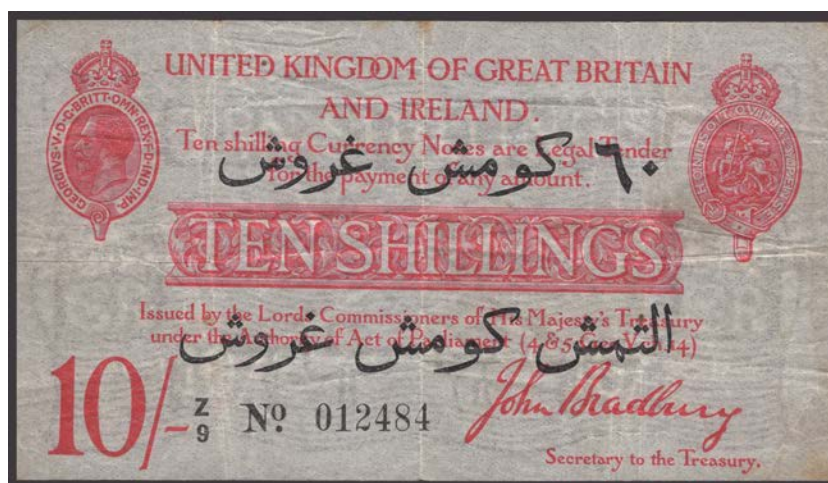 GEORGIVS·V·D·G·BRITT·OMN·REX·F·D·IND·IMP·
UNITED KINGDOM OF GREAT BRITAIN
AND IRELAND.
Ten shilling Currency Notes are Legal Tender
for the payment of any amount.
٦٠ كومش غروش
TEN SHILLINGS
Issued by the Lords Commissioners of His Majesty's Treasury
under the Authority of Act of Parliament (4 & 5 Geo. V ch. 14)
التمش كومش غروش
10/- Z/9 Nº 012484
John Bradbury
Secretary to the Treasury.